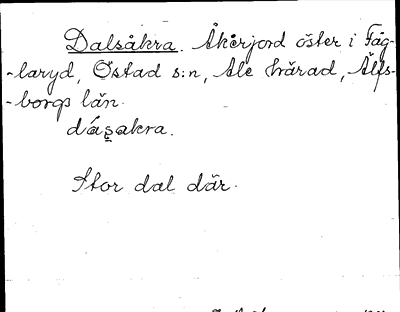 Dalsåkra. Åkerjord öster i Fåg-
-laryd, Östad s:n, Ale härad, Älfs-
-borgs län.
dá̹sakra.
Stor dal där.